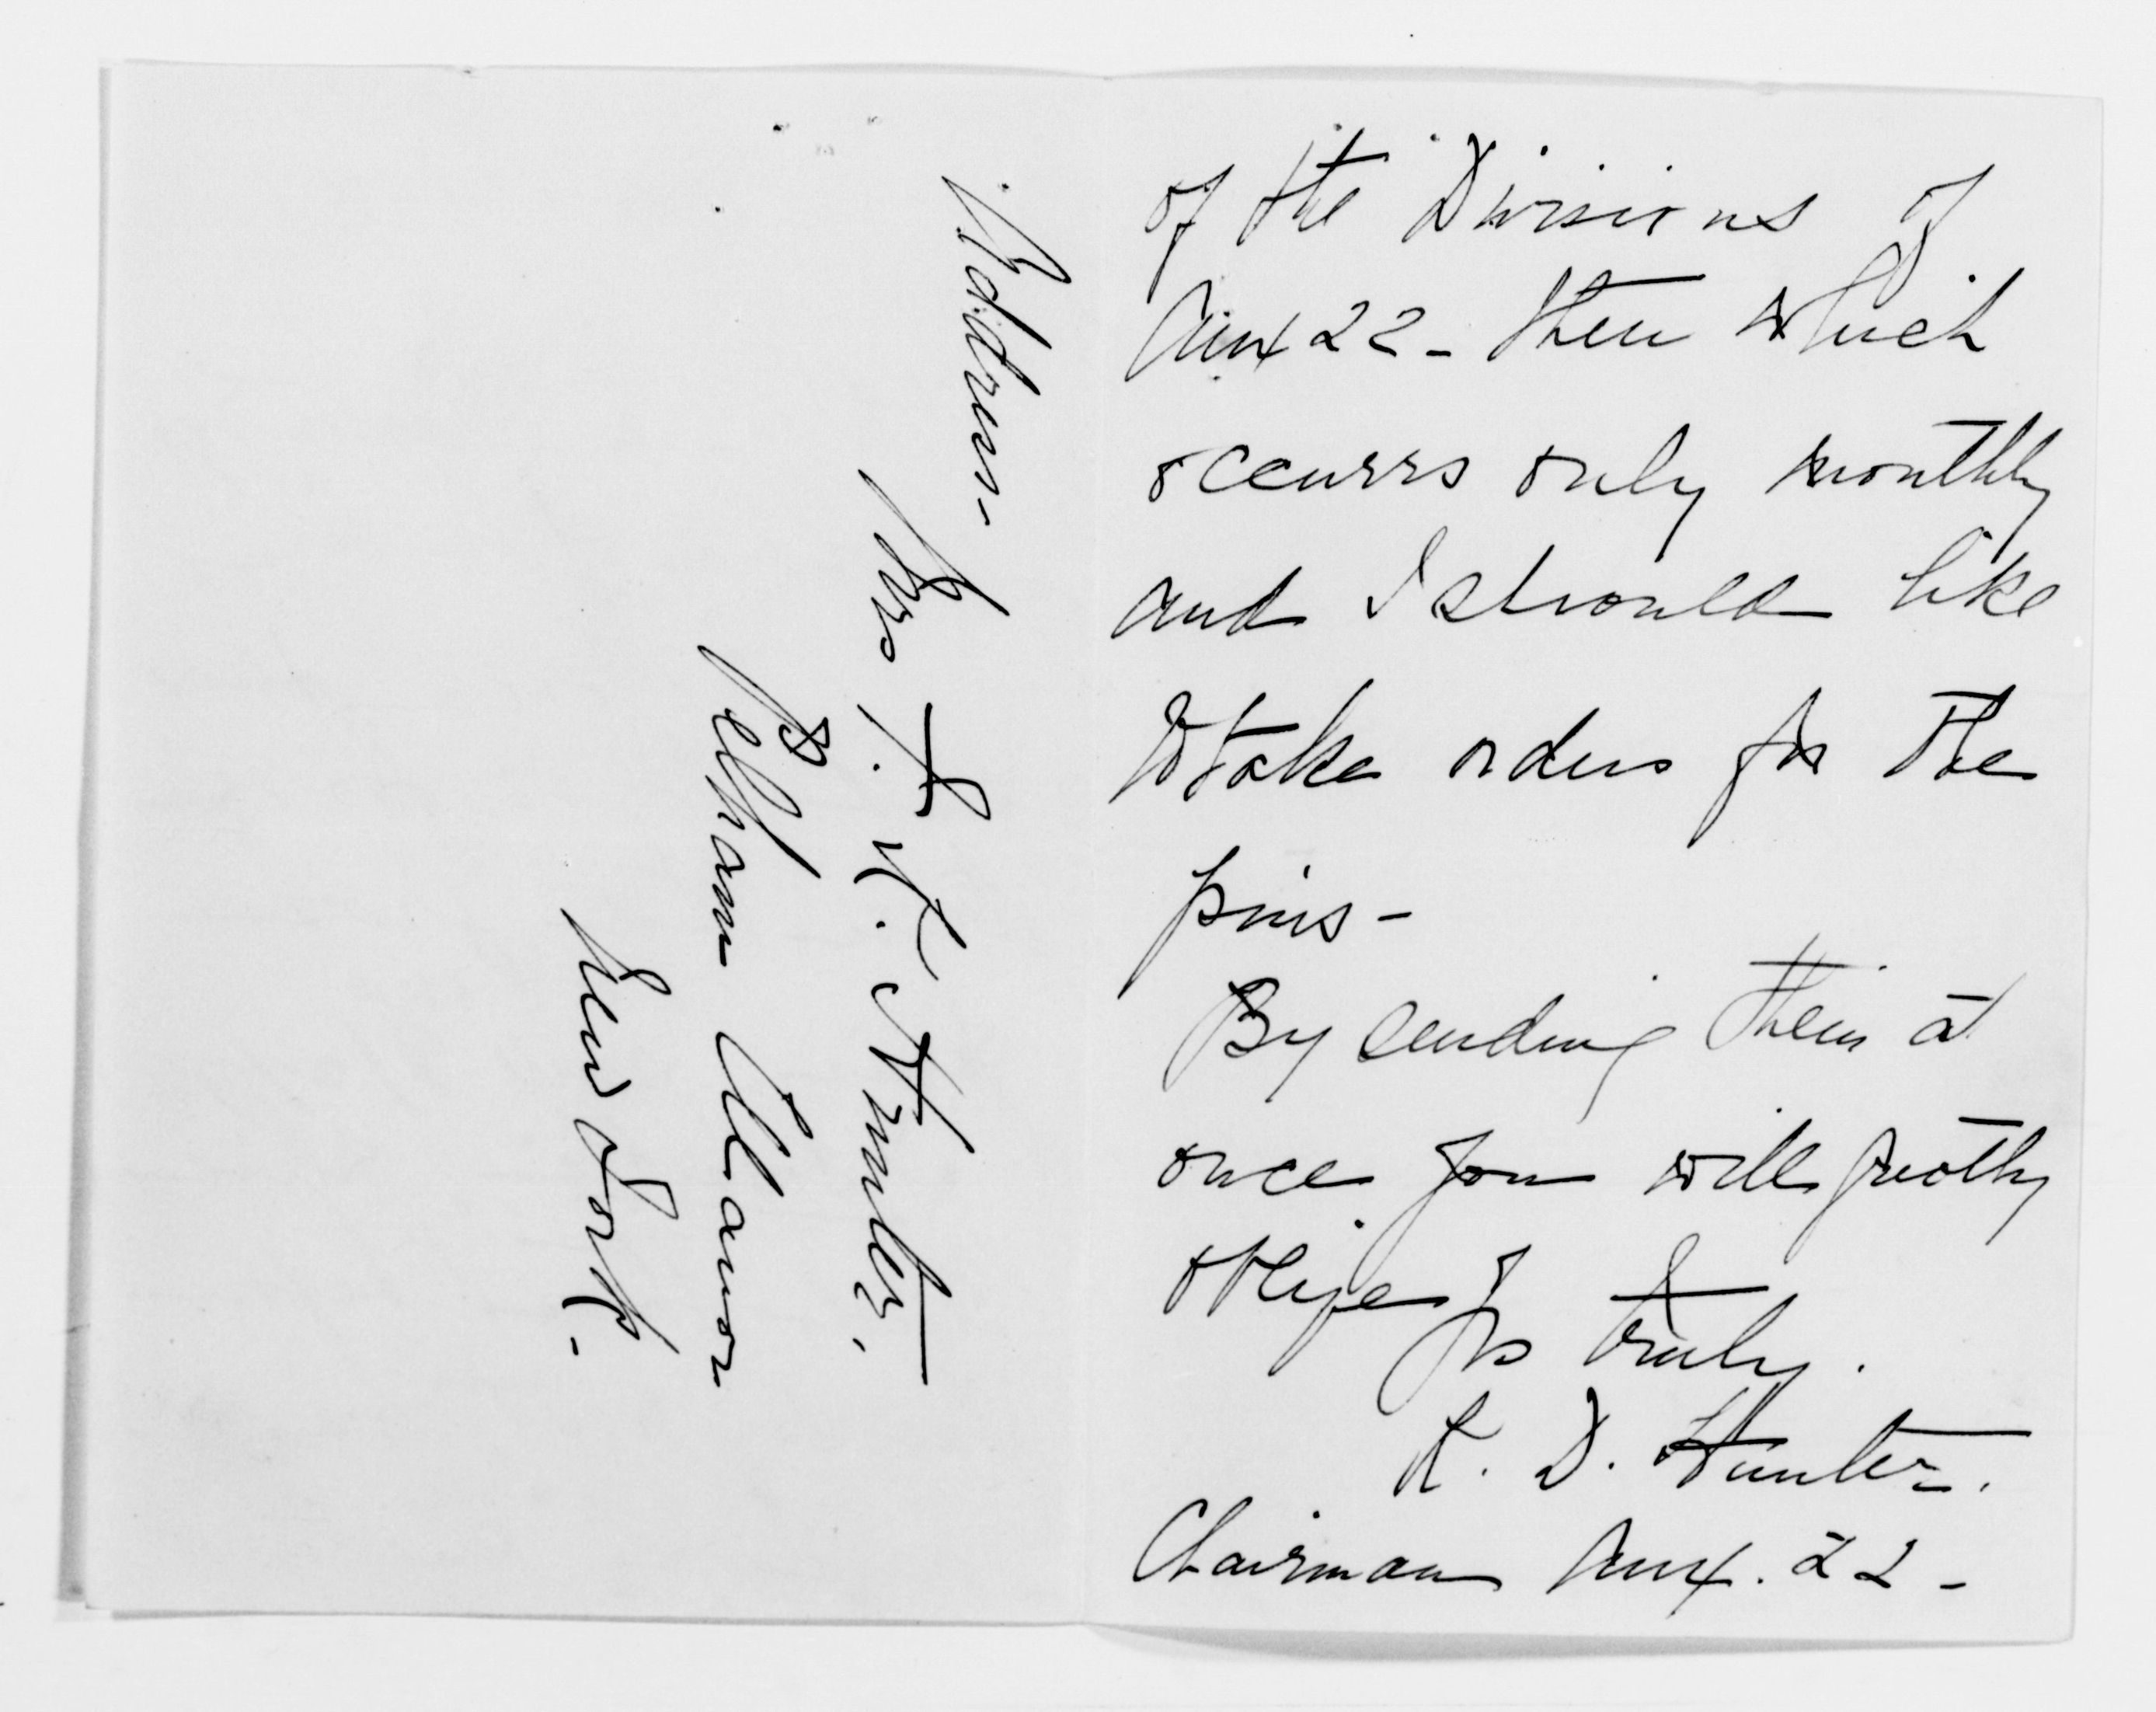 of the Divisions of
Aux 22 - then which
occurrs only monthly
and I should like
to take orders for the
pins -
By sending them at
once you will greatly
oblige
Yrs truly.
K. D. Hunter.
Chairman Aux. 22 -
Address -
Mrs F. K. Hunter,
Pelham Manor
New York.